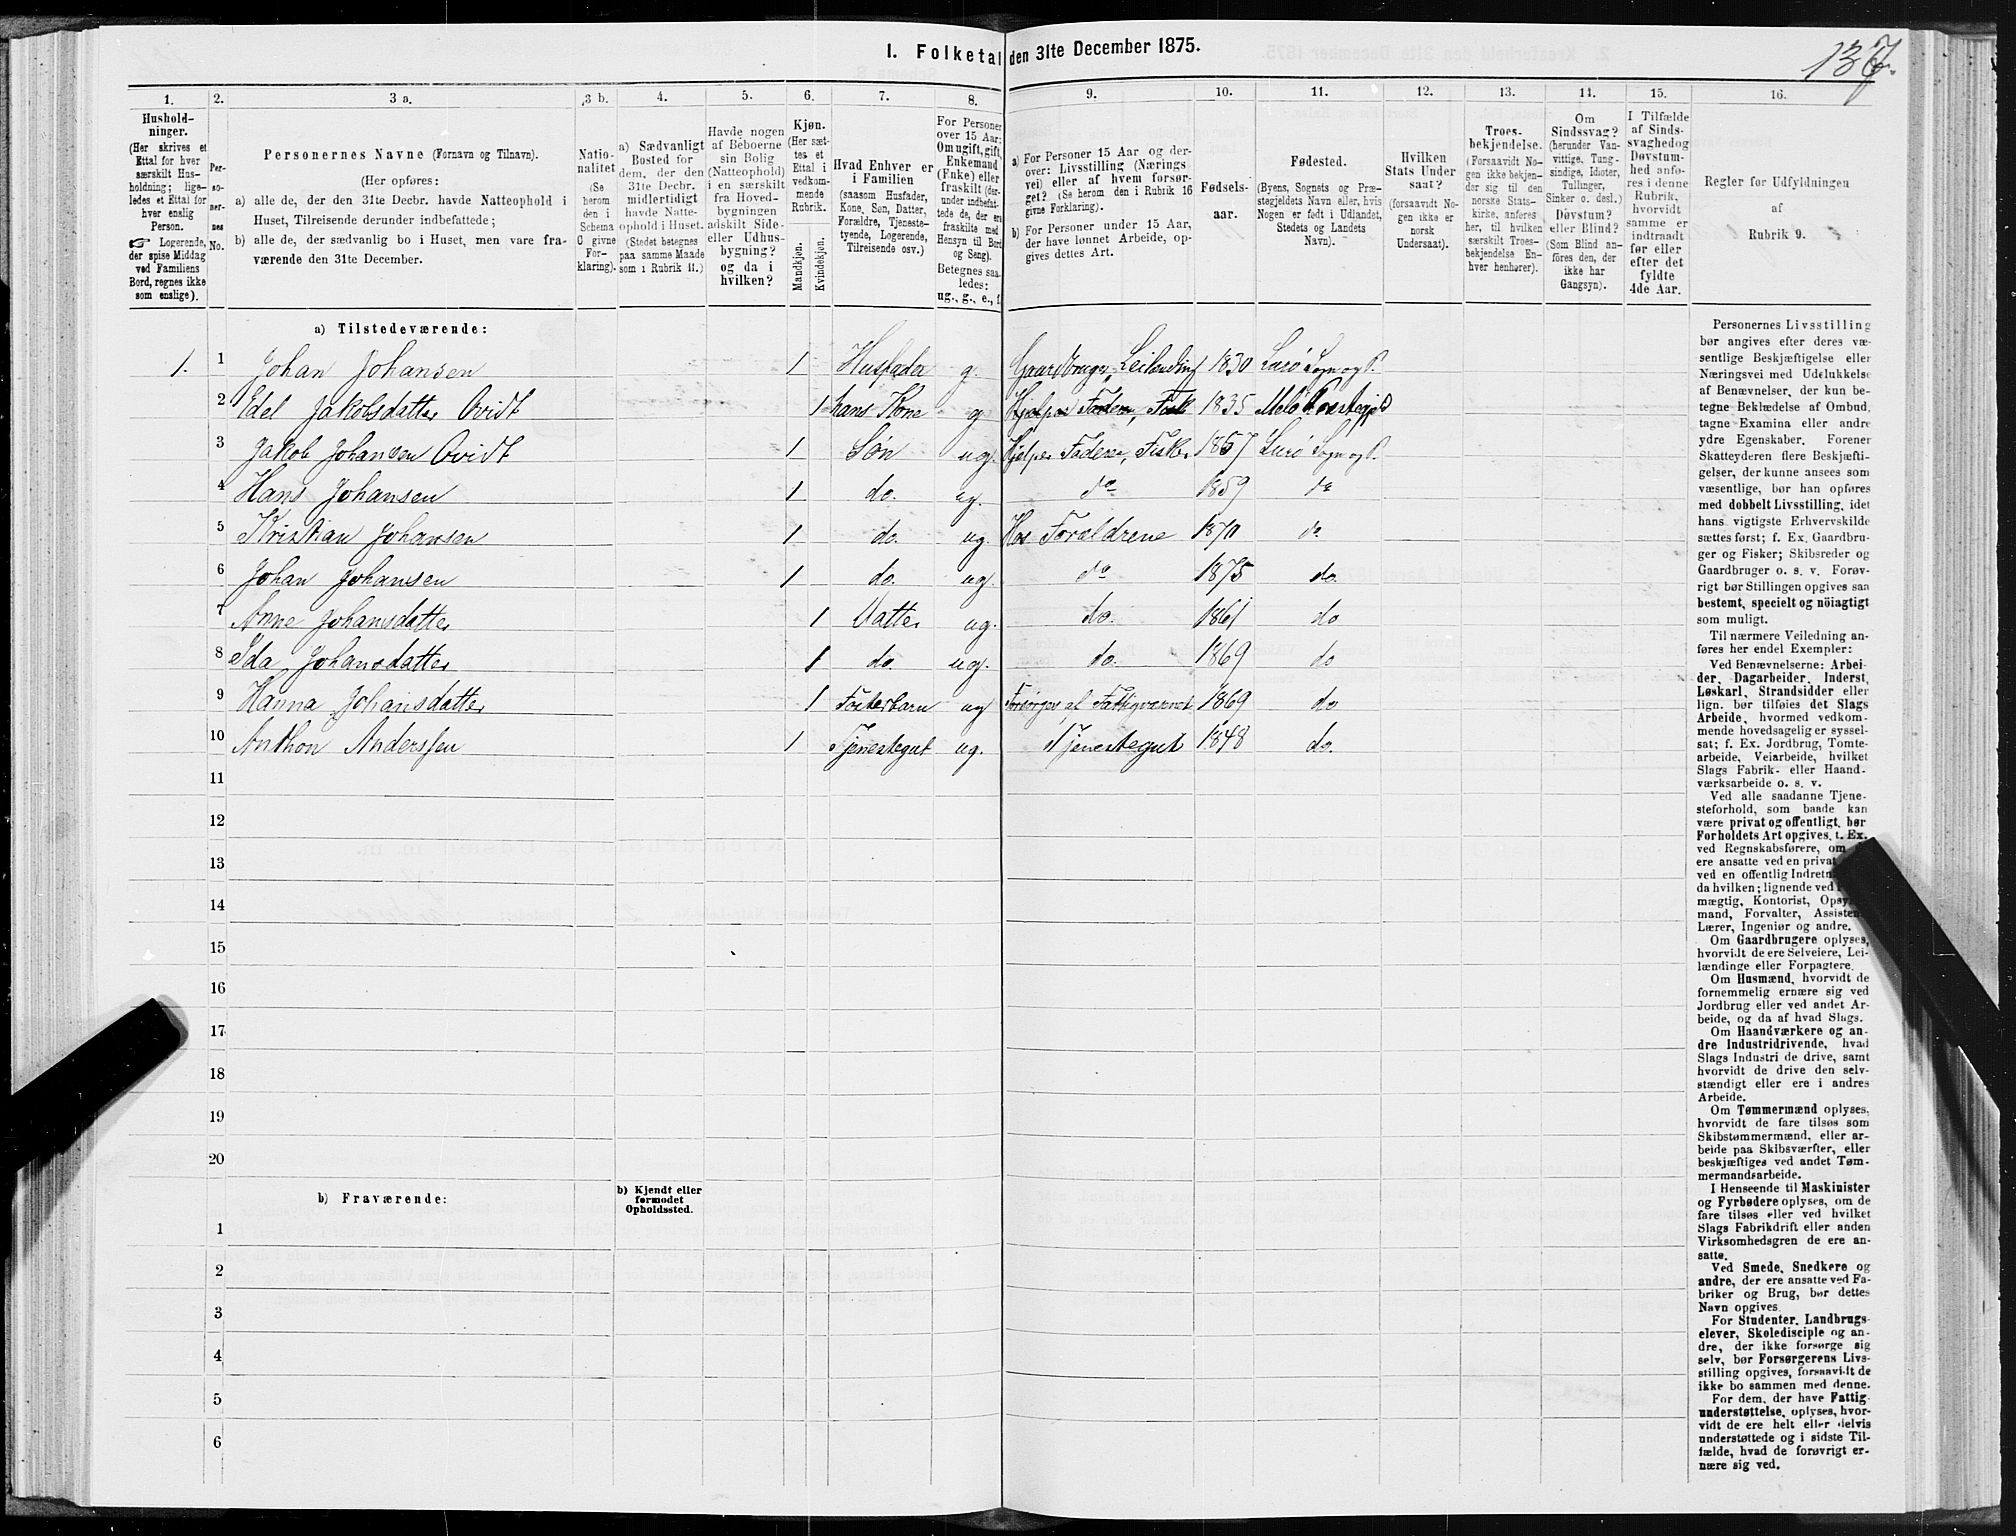 I. Folketal den 31te December 1875.
137.
1.
Hushold-
ninger.
(Her skrives et
Ettal for hver
særskilt Hus-
holdning; lige-
ledes et Ettal for
hver enslig
Person.
☞ Logerende,
der spise Middag
ved Familiens
Bord, regnes ikke
som enslige).
2.
Per-
so-
ner-
nes
No.
3 a.
Personernes Navne (Fornavn og Tilnavn).
(Her opføres:
a) alle de, der den 31te Decbr. havde Natteophold i
Huset, Tilreisende derunder indbefattede;
b) alle de, der sædvanlig bo i Huset, men vare fra-
værende den 31te December.
3 b.
Natio-
nalitet
(Se
herom
den i
Schema
O givne
For-
klaring).
4.
a) Sædvanligt
Bosted for
dem, der den
31te Decbr.
midlertidigt
havde Natte-
ophold i Huset.
(Stedet betegnes
paa samme Maade
som i Rubrik 11.)
5.
Havde nogen
af Beboerne
sin Bolig
(Natteophold)
i en særskilt
fra Hoved-
bygningen
adskilt Side-
eller Udhus-
bygning?
og da i
hvilken?
6.
Kjøn.
(Her sæt-
tes et
Ettal i
vedkom-
mende
Rubrik.
Mandkjøn.
Kvindekjøn.
7.
Hvad Enhver er
i Familien
(saasom Husfader,
Kone, Søn, Datter,
Forældre, Tjeneste-
tyende, Logerende,
Tilreisende osv.)
8.
For Personer
over 15 Aar:
Om ugift, gift,
Enkemand
(Enke) eller
fraskilt (der-
under indbefat-
tede de, der ere
fraskilte med
Hensyn til Bord
og Seng).
Betegnes saa-
ledes:
ug., g., e., f.
9.
a) For Personer 15 Aar og der-
over: Livsstilling (Nærings-
vei) eller af hvem forsør-
get? (Se herom den i Rubrik 16
givne Forklaring).
b) For Personer under 15 Aar,
der have lønnet Arbeide, op-
gives dettes Art.
10.
Fødsels-
aar.
11.
Fødested.
(Byens, Sognets og Præ-
stegjeldets Navn eller, hvis
Nogen er født i Udlandet,
Stedets og Landets
Navn).
12.
Hvilken
Stats Under
saat?
(forsaavidt No-
gen ikke er
norsk
Undersaat).
13.
Troes-
bekjendelse.
(Forsaavidt No-
gen ikke bekjen-
der sig til den
norske Stats-
kirke, anføres
her, til hvilken
særskilt Troes-
bekjendelse En-
hver henhører).
14.
Om
Sindssvag?
(herunder Van-
vittige, Tung-
sindige, Idioter,
Tullinger,
Sinker o. desl.)
Døvstum?
eller Blind?
(Som Blind an-
føres den, der
ikke har
Gangsyn).
15.
I Tilfælde
af Sinds-
svaghed og
Døvstum-
hed anfø-
res i denne
Rubrik,
hvorvidt
samme er
indtraadt
før eller
efter det
fyldte
4de Aar.
16.
Regler for Udfyldningen
af
Rubrik 9.
a) Tilstedeværende:
1. 1 Johan Johansen 1 Husfader g. Gaardbruger, Leilænding 1830 Lurø Sogn og P.
2 Edel Jakobsdatter Qvidt 1 hans Kone g Hjelper Faderen, Fisk 1835 Melø Præstegjd
3 Jakob Johansen Qvidt 1 Søn ug. Hjelper Faderen, Fisker 1857 Lurø Sogn og P.
4 Hans Johansen 1 do. ug. do 1859 do
5 Kristian Johansen 1 do. ug Hos Forældrene 1870 do
6 Johan Johansen 1 do. ug. do 1875 do.
7 Anne Johansdatter 1 Datter ug. do. 1861 do
8 Ida Johansdatter 1 do. ug. do. 1869 do
9 Hanna Johansdatter 1 Fosterbarn ug Forsørges af Fattigvæsenet 1869 do.
10 Anthon Anderssen 1 Tjenestegut ug. Tjenestegut 1848 do.
11
12
13
14
15
16
17
18
19
20
b) Fraværende:
b) Kjendt eller
formodet
Opholdssted.
1
2
3
4
5
6
Personernes Livsstilling
bør angives efter deres væ-
sentlige Beskjæftigelse eller
Næringsvei med Udelukkelse
af Benævnelser, der kun be-
tegne Beklædelse af Ombud,
tagne Examina eller andre
ydre Egenskaber. Forener
Skatteyderen flere Beskjæfti-
gelser, der kunne ansees som
væsentlige, bør han opføres
med dobbelt Livsstilling, idet
hans vigtigste Erhvervskilde
sættes først; f. Ex. Gaardbru-
ger og Fisker; Skibsreder og
Gaardbruger o. s. v. Forøv-
rigt bør Stillingen opgives saa
bestemt, specielt og nöiagtigt
som muligt.
Til nærmere Veiledning an-
føres her endel Exempler:
Ved Benævnelserne: Arbei-
der, Dagarbeider, Inderst,
Løskarl, Strandsidder eller
lign. bør tilføies det Slags
Arbeide, hvormed vedkom-
mende hovedsagelig er syssel-
sat; f. Ex. Jordbrug, Tomte-
arbeide, Veiarbeide, hvilket
Slags Fabrik- eller Haand-
værksarbeide o. s. v.
Ved alle saadanne Tjene-
steforhold, som baade kan
være privat og offentligt, bør
Forholdets Art opgives, t. Ex.
ved Regnskabsførere, om
ere ansatte ved en privat
ved en offentlig Indretn
da hvilken; lignende ved
mægtig, Kontorist, Opsy
mand, Forvalter, Assisten
Lærer, Ingeniør og andre.
Om Gaardbrugere oplyses,
hvorvidt de ere Selveiere, Lei-
lændinge eller Forpagtere.
Om Husmænd, hvorvidt de
fornemmelig ernære sig ved
Jordbrug eller ved andet Ar-
beide, og da af hvad Slags.
Om Haandværkere og an-
dre Industridrivende, hvad
Slags Industri de drive, samt
hvorvidt de drive den selv-
stændigt eller ere i andres
Arbeide.
Om Tømmermænd oplyses,
hvorvidt de fare tilsøs som
Skibstømmermænd, eller ar-
beide paa Skibsværfter, eller
beskjæftiges ved andet Tøm-
mermandsarbeide.
I Henseende til Maskinister
og Fyrbødere oplyses, om de
fare tilsøs eller ved hvilket
Slags Fabrikdrift eller anden
Virksomhedsgren de ere an-
satte.
Ved Smede, Snedkere og
andre, der ere ansatte ved Fa-
briker og Brug, bør dettes
Navn opgives.
For Studenter, Landbrugs-
elever, Skoledisciple og an-
dre, der ikke forsørge sig
selv, bør Forsørgerens Livs-
stilling opgives, forsaavidt de
ikke bo sammen med denne.
For dem, der have Fattig-
understøttelse, oplyses, hvor-
vidt de ere helt eller delvis
understøttede og i sidste Til-
fælde, hvad de forøvrigt er-
nære sig ved.